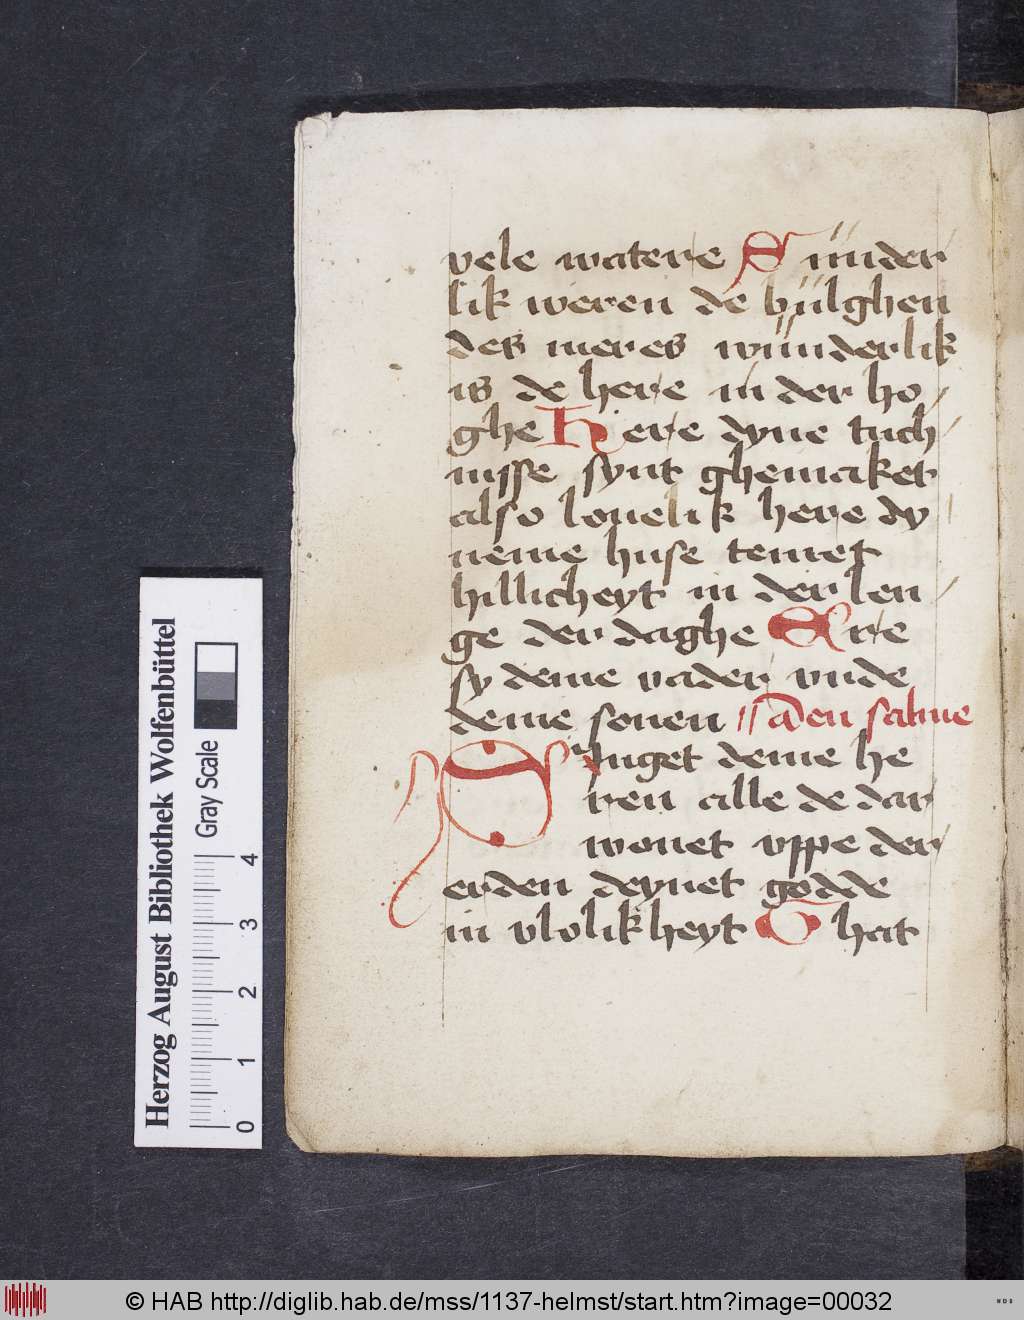 vele watere Sunder
lik weren de bulghen
des meres wunderlik
is de here in der ho
ghe Here dyne tuch
nisse synt ghemaket
also louelik here dy
neme huse temet
hillicheyt in der len
ge der daghe Ere
sy deme vader vnde
deme sonen Den salme
Singet deme he
ren alle de dar
wonet vppe der
erden deynet godde
in vrolikheyt Ghat
Herzog August Bibliothek Wolfenbüttel
Gray Scale
0 1 2 3 4
© HAB http://diglib.hab.de/mss/1137-helmst/start.htm?image=00032